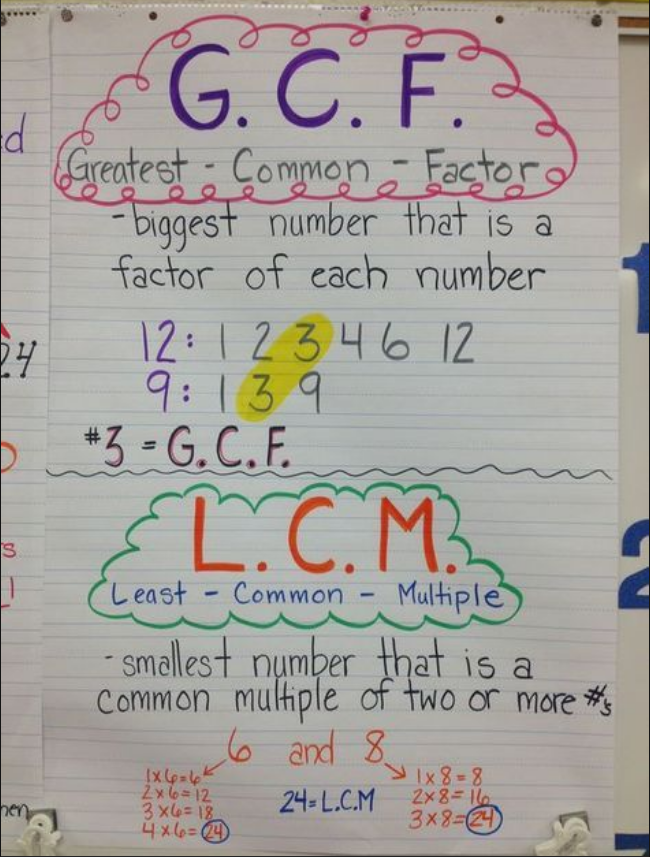 G. C. F.
Greatest - Common - Factor
-biggest number that is a
factor of each number
12: 1 2 3 4 6 12
9: 1 3 9
#3 = G.C.F.
L. C. M.
Least - Common - Multiple
-smallest number that is a
common multiple of two or more #s
6 and 8
1x6=6
2x6=12
3x6=18
4x6=24
24=L.C.M
1x8=8
2x8=16
3x8=24
d
24
s
1
2